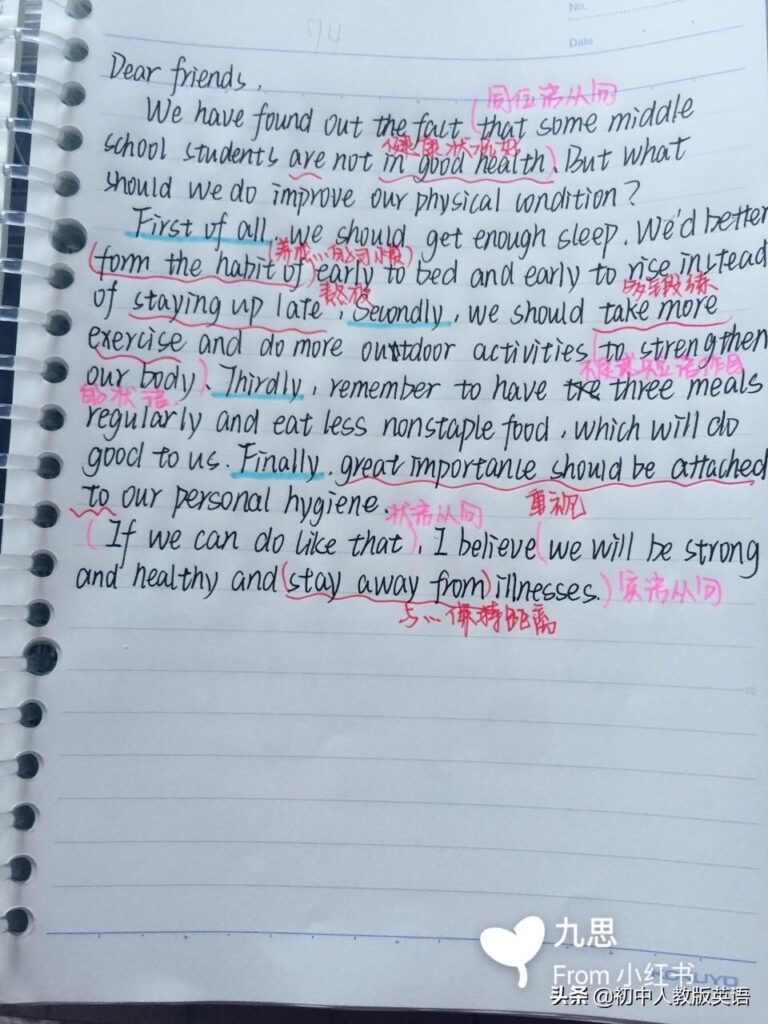 No.
74
Date
Dear friends,
同位语从句
We have found out the fact (that some middle
健康状况好
school students are not in good health). But what
should we do improve our physical condition?
First of all, we should get enough sleep. We'd better
(养成…的习惯)
(form the habit of) early to bed and early to rise instead
熬夜 多锻炼
of staying up late. Secondly, we should take more
exercise and do more outdoor activities (to strengthen
不定式短语作目
our body). Thirdly, remember to have the three meals
的状语.
regularly and eat less nonstaple food, which will do
good to us. Finally, great importance should be attached
to our personal hygiene. 重视
状语从句
(If we can do like that), I believe (we will be strong
and healthy and (stay away from) illnesses.) 宾语从句
与…保持距离
15
九思
From 小红书
KOKUYO
头条 @初中人教版英语